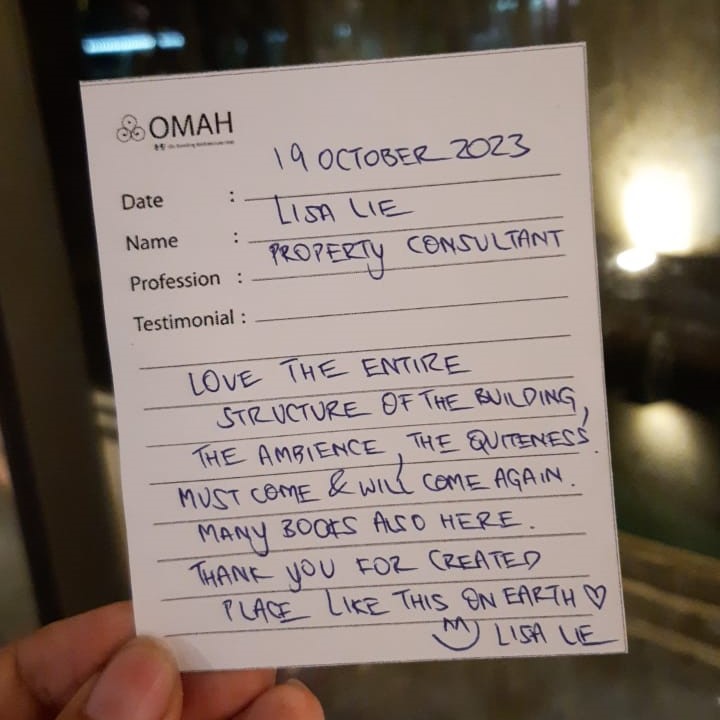 OMAH
19 OCTOBER 2023
Date :
LISA LIE
Name :
PROPERTY CONSULTANT
Profession :
Testimonial :
LOVE THE ENTIRE
STRUCTURE OF THE BUILDING,
THE AMBIENCE, THE QUITENESS.
MUST COME & WILL COME AGAIN.
MANY BOOKS ALSO HERE.
THANK YOU FOR CREATED
PLACE LIKE THIS ON EARTH ♡
LISA LIE